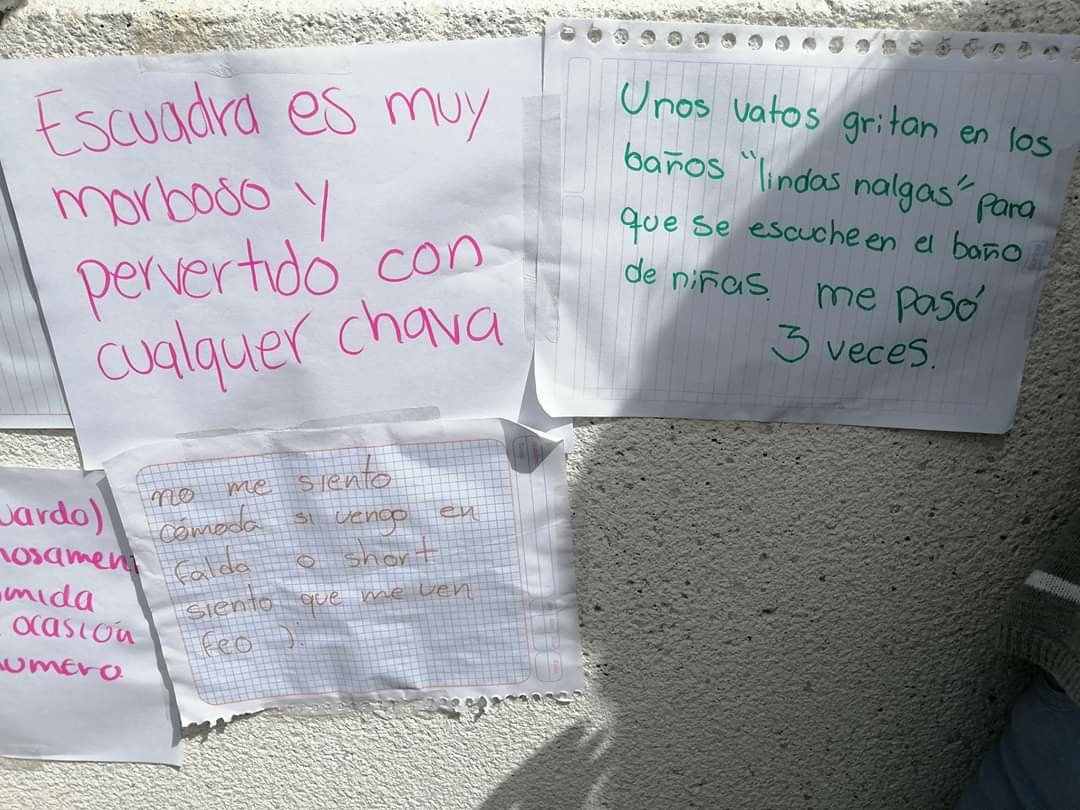 Escuadra es muy
morboso y
pervertido con
cualquer chava
Unos vatos gritan en los
baños "lindas nalgas" para
que se escuche en el baño
de niñas. me pasó
3 veces.
no me siento
cómoda si vengo en
falda o short
siento que me ven
feo ):
ocasión